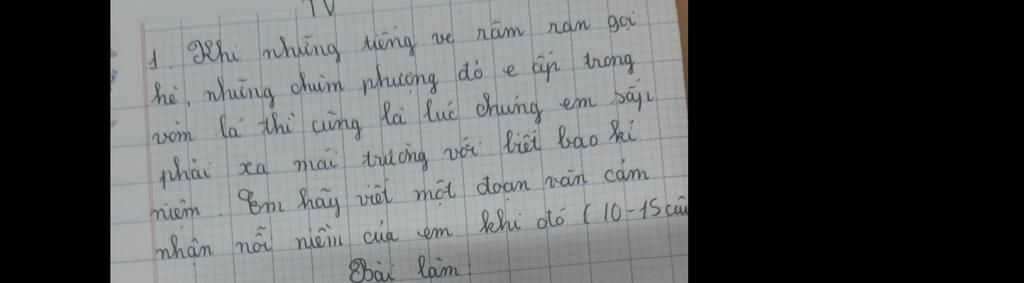 TV
1. Khi những tiếng ve râm ran gọi
hè, những chùm phượng đỏ e ấp trong
vòm lá thì cũng là lúc chúng em sắp
phải xa mái trường với biết bao kỉ
niệm. Em hãy viết một đoạn văn cảm
nhận nỗi niềm của em khi đó (10-15 câu
Bài làm